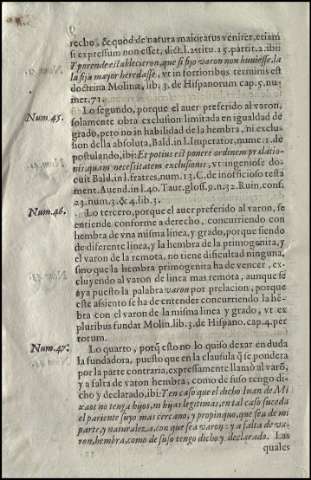 recho, & quod de natura maioratus veniret, etiam
si expressum non esset, dict. l. 2. titu. 15. partit. 2. ibi:
Y por ende establecieron, que si fijo varon non huuiesse, la
la fija mayor heredasse, vt in fortioribus terminis est
doctrina Molina, lib. 3. de Hispanorum cap. 5. nu-
mer. 71.
Num. 45.
Lo segundo, porque el auer preferido al varon,
solamente obra exclusion limitada en igualdad de
grado, pero no inhabilidad de la hembra, ni exclu-
sion della absoluta, Bald. in l. Imperator, numer. 1. de
postulando, ibi: Et potius est ponere ordinem prælatio-
nis quam necessitatem exclusionis, vt ingeniose do-
cuit Bald. in l. fratres, num. 13. C. de inofficioso testa
ment. Auend. in l. 40. Taur. gloss. 9. n. 32. Ruin. cons.
23. num. 3. & 4. lib. 3.
Num. 46.
Lo tercero, porque el auer preferido al varon, se
entiende conforme a derecho, concurriendo con
hembra de vna misma linea, y grado, porque siendo
de diferente linea, y la hembra de la primogenita, y
el varon de la remota, no tiene dificultad ninguna,
sino que la hembra primogenita ha de vencer, ex-
cluyendo al varon de linea mas remota, aunque se
aya puesto la palabra varon por prelacion, porque
este assiento se ha de entender concurriendo la hē-
bra con el varon de la misma linea y grado, vt ex
pluribus fundat Molin. lib. 3. de Hispano. cap. 4. per
totum.
Num. 47.
Lo quarto, porq̃ esto no lo quiso dexar en duda
la fundadora, puesto que en la clausula q̃ se pondera
por la parte contraria, expressamente llamò al varõ,
y a falta de varon hembra, como de suso tengo di-
cho y declarado, ibi: Y en caso que el dicho Iuan de Mi
xaot no tenga hijos, ni hijas legitimas, en tal caso suceda
el pariente suyo mas cercano, y propinquo, que sea de mi
parte, y naturaleza, con que sea varon: y a falta de va-
ron, hembra, como de suso tengo dicho y declarado. Las
quales